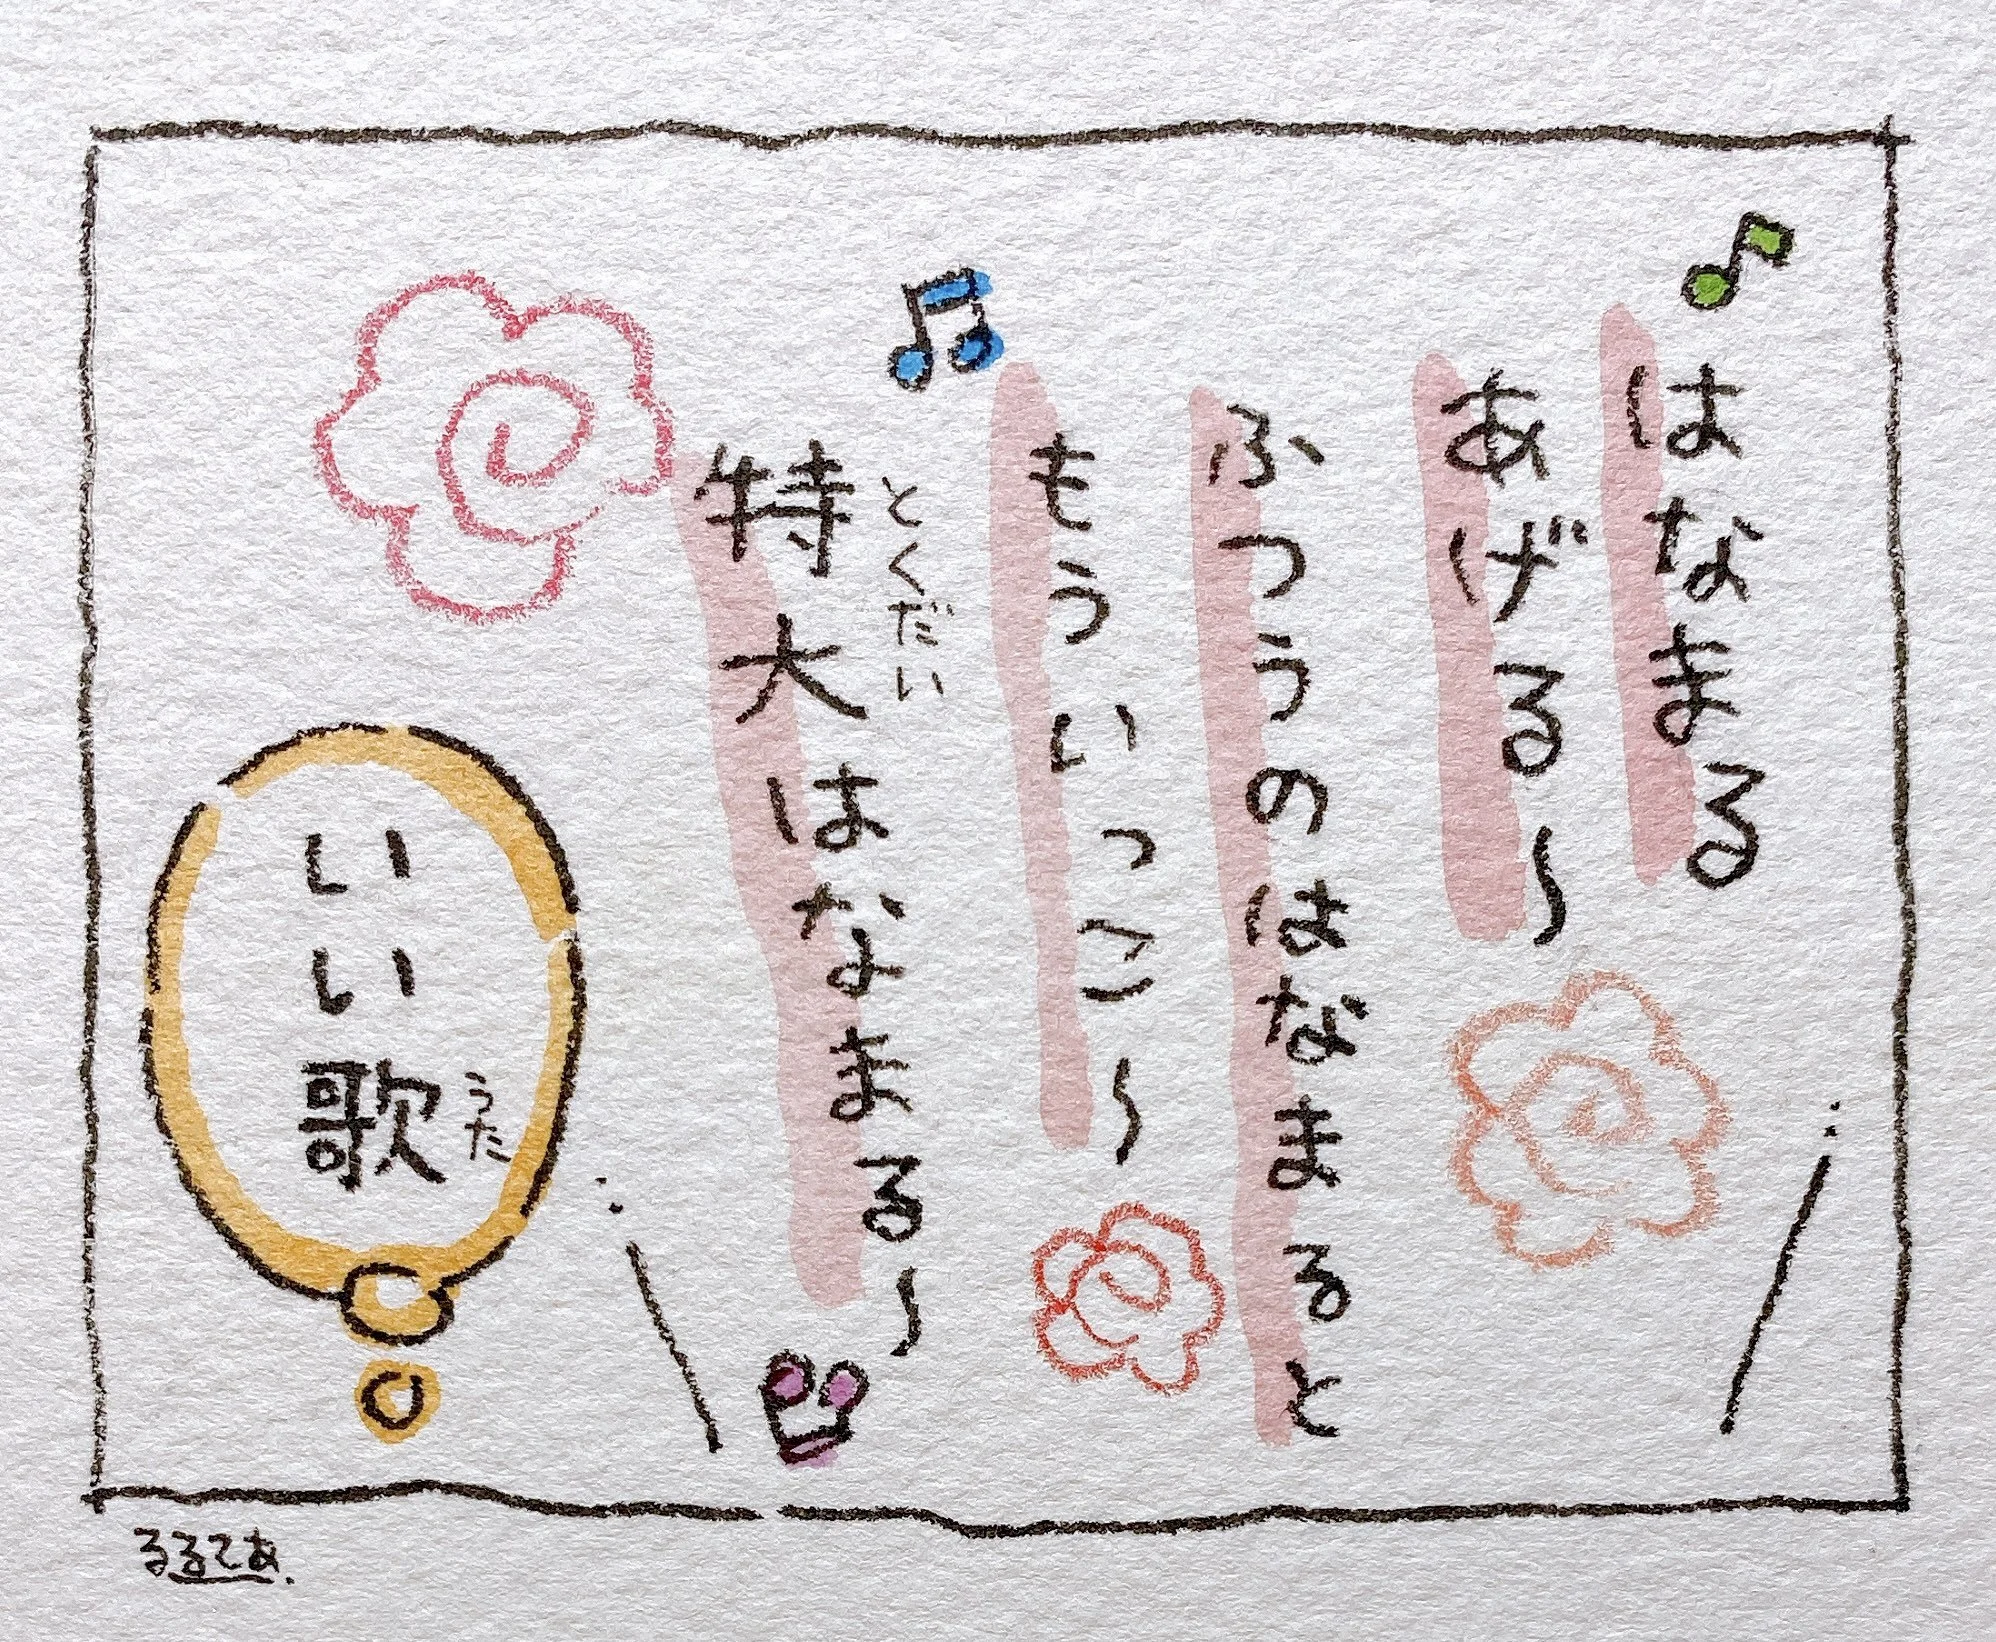 はなまる
あげる〜
ふつうのはなまると
もういっこ〜
特大はなまる〜
とくだい
いい歌
うた
るるてあ.